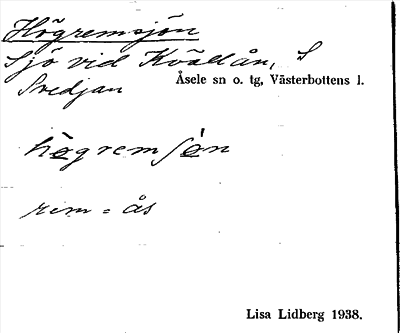 Högremsjön
Sjö vid Kvällån, S
Svedjan
Åsele sn o. tg, Västerbottens l.
rem = ås
Lisa Lidberg 1938.